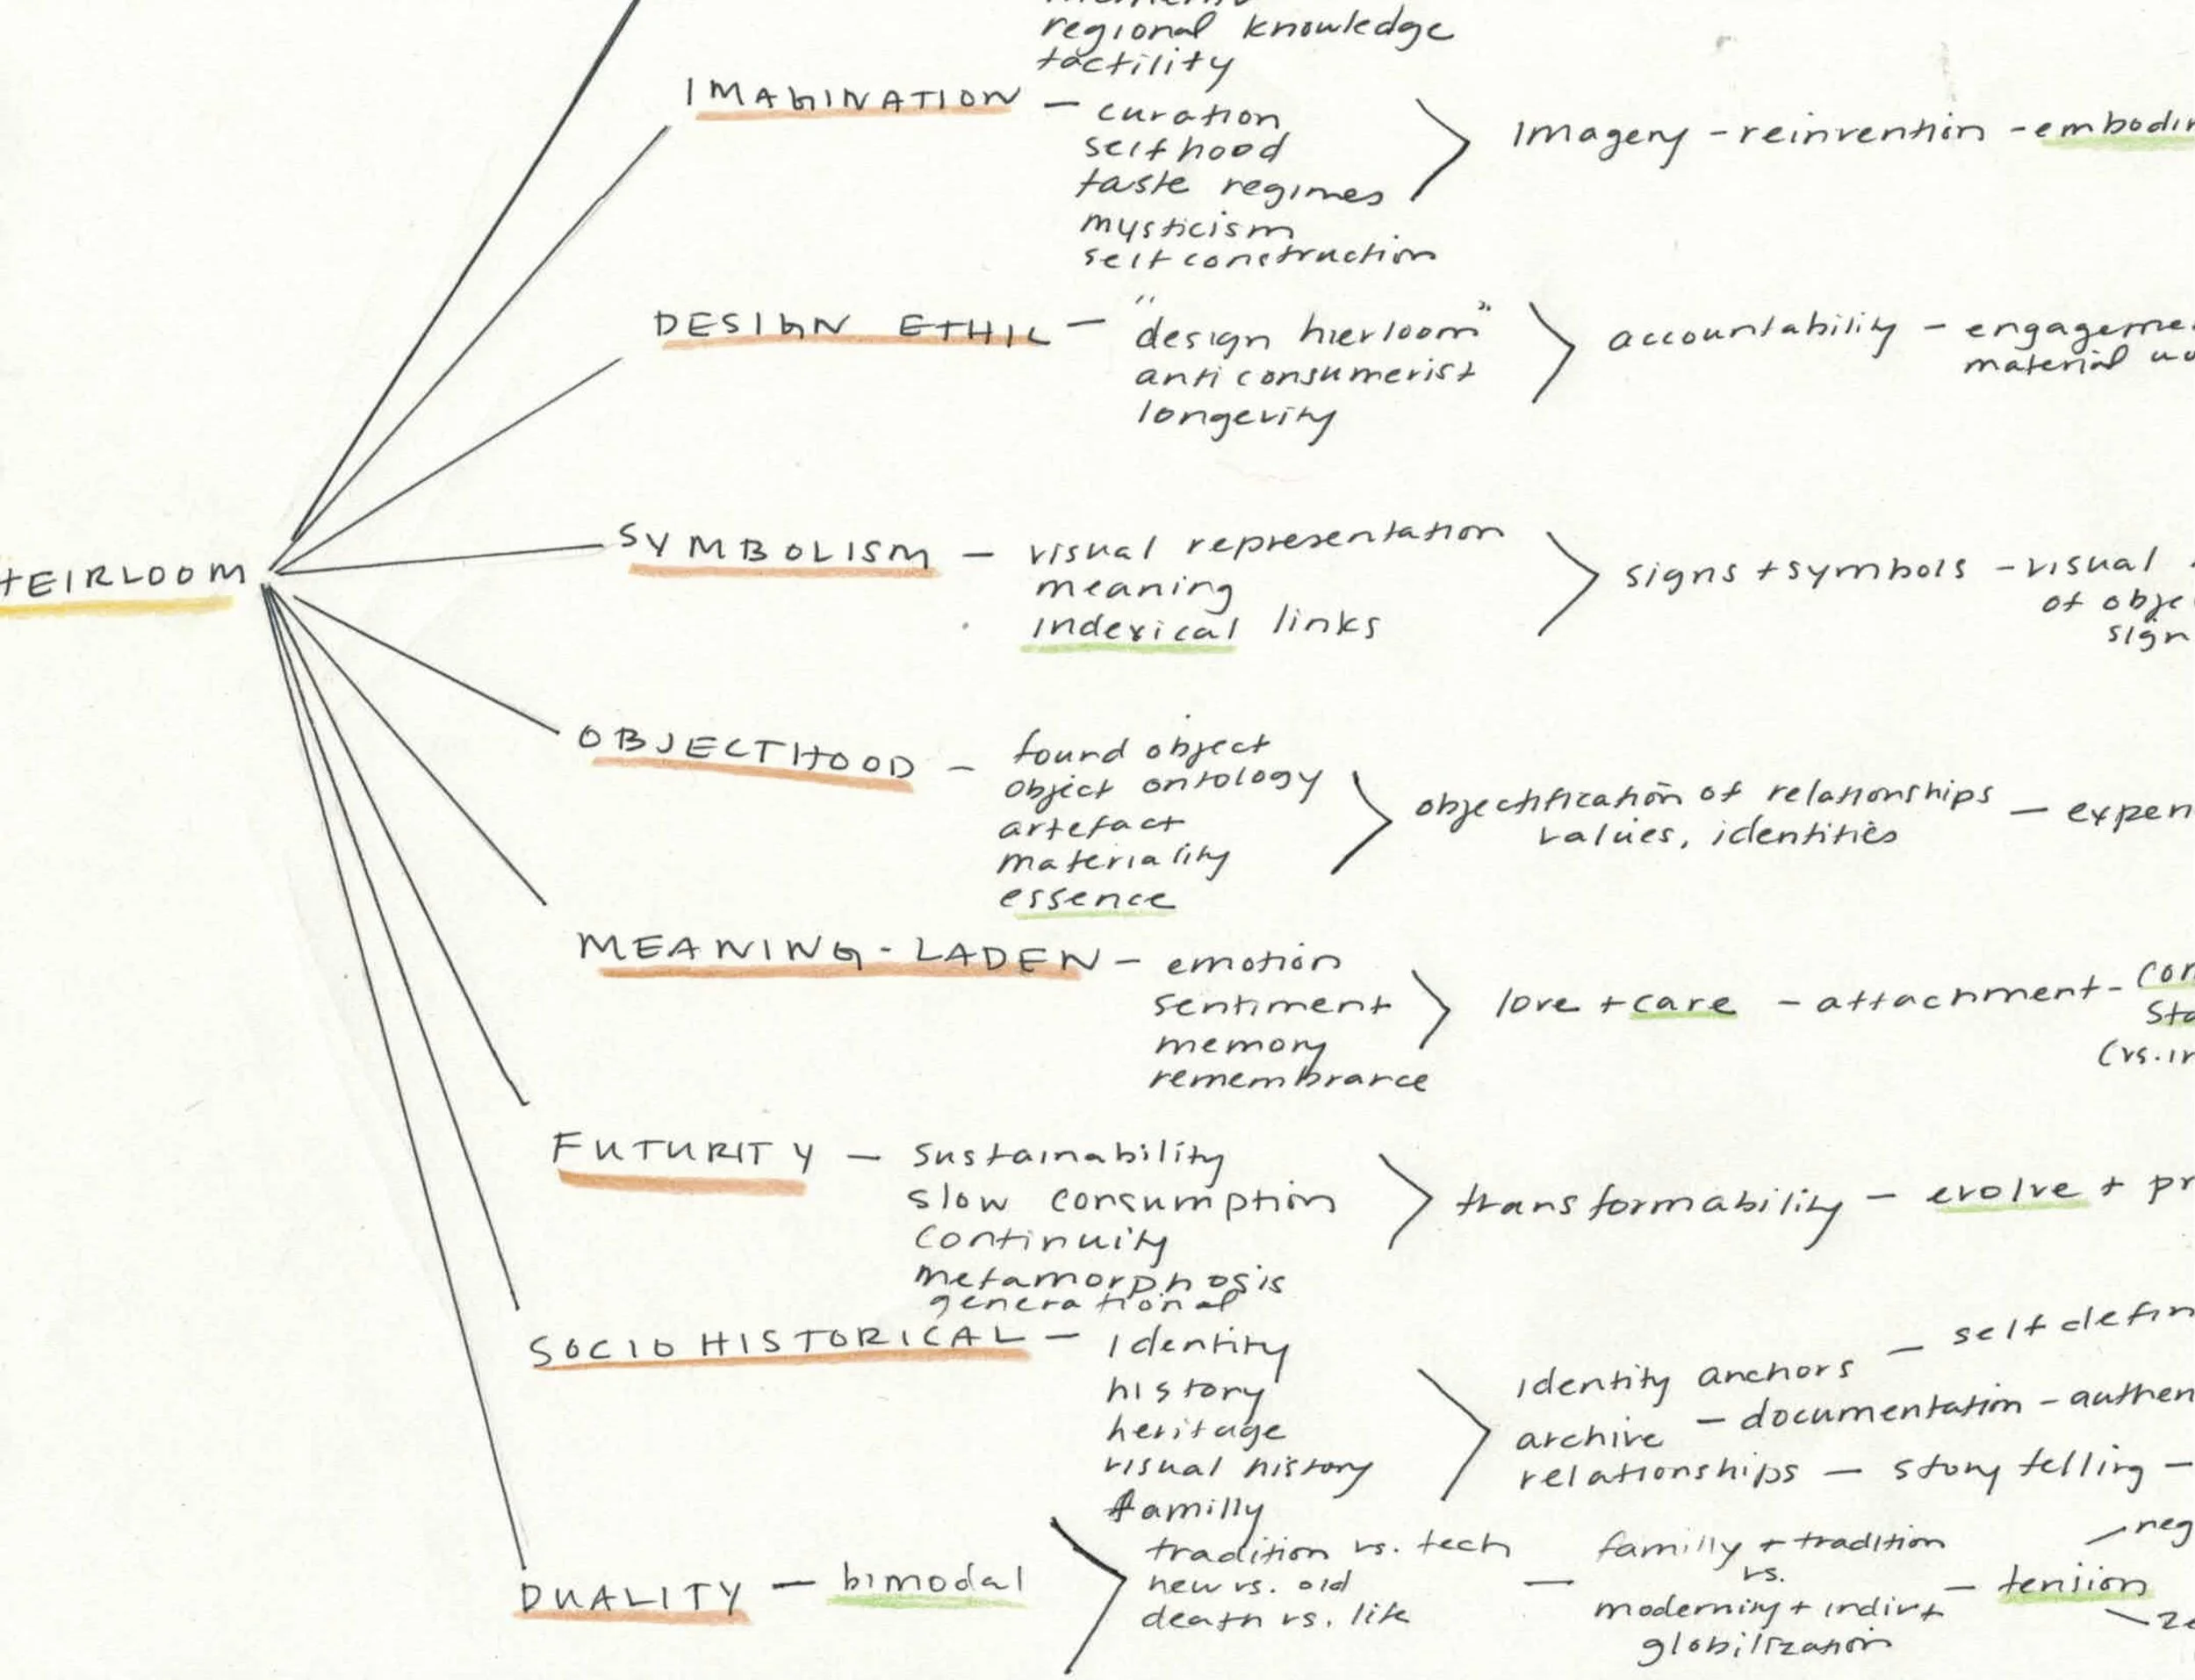 regional knowledge
tactility
IMAGINATION — curation
selfhood
taste regimes
mysticism
self construction
Imagery - reinvention -
DESIGN ETHIC — "design hierloom"
anti consumerist
longevity
accountability -
material
HEIRLOOM
SYMBOLISM — visual representation
meaning
indexical links
signs + symbols - visual
of
sign
OBJECTHOOD — found object
object ontology
artefact
materiality
essence
objectification of relationships —
values, identities
MEANING-LADEN — emotion
sentiment
memory
remembrance
love + care - attachment -
FUTURITY — sustainability
slow consumption
continuity
metamorphosis
generational
transformability — evolve +
SOCIO HISTORICAL — Identity
history
heritage
visual history
familly
identity anchors — self
archive — documentation -
relationships — story telling —
DUALITY — bimodal
tradition vs. tech
new vs. old
death vs. life
— familly + tradition
vs.
modernity +
globilization
— tension